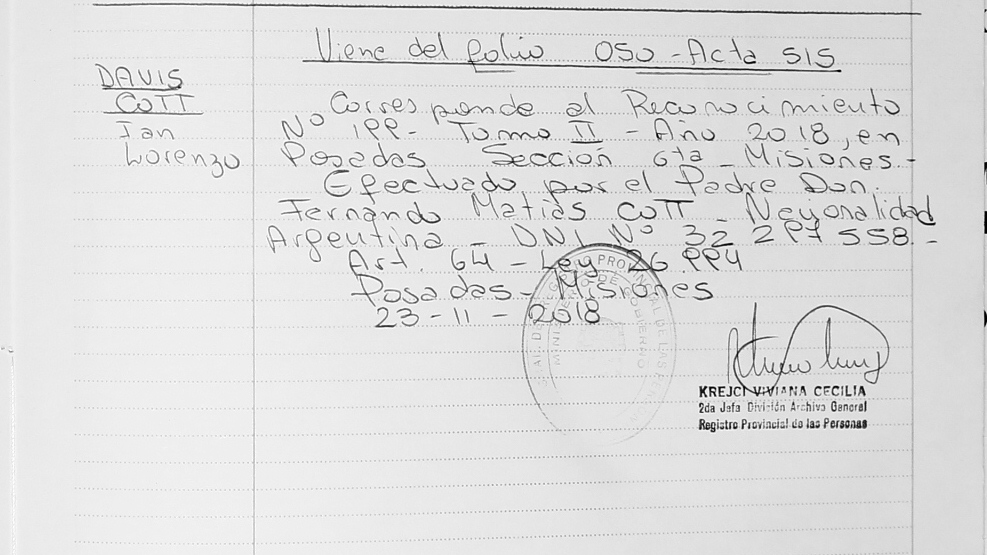 Viene del folio 050 - Acta 515
DAVIS
COTT
Ian
Lorenzo
Corresponde al Reconocimiento
Nº 199 - Tomo II - Año 2018, en
Posadas Sección 6ta - Misiones -
Efectuado por el Padre Don.
Fernando Matias COTT - Nacionalidad
Argentina - DNI Nº 32 297 558 -
Art. 64 - Ley 26.994
Posadas - Misiones
23 - 11 - 2018
KREJCI VIVIANA CECILIA
2da Jefa División Archivo General
Registro Provincial de las Personas